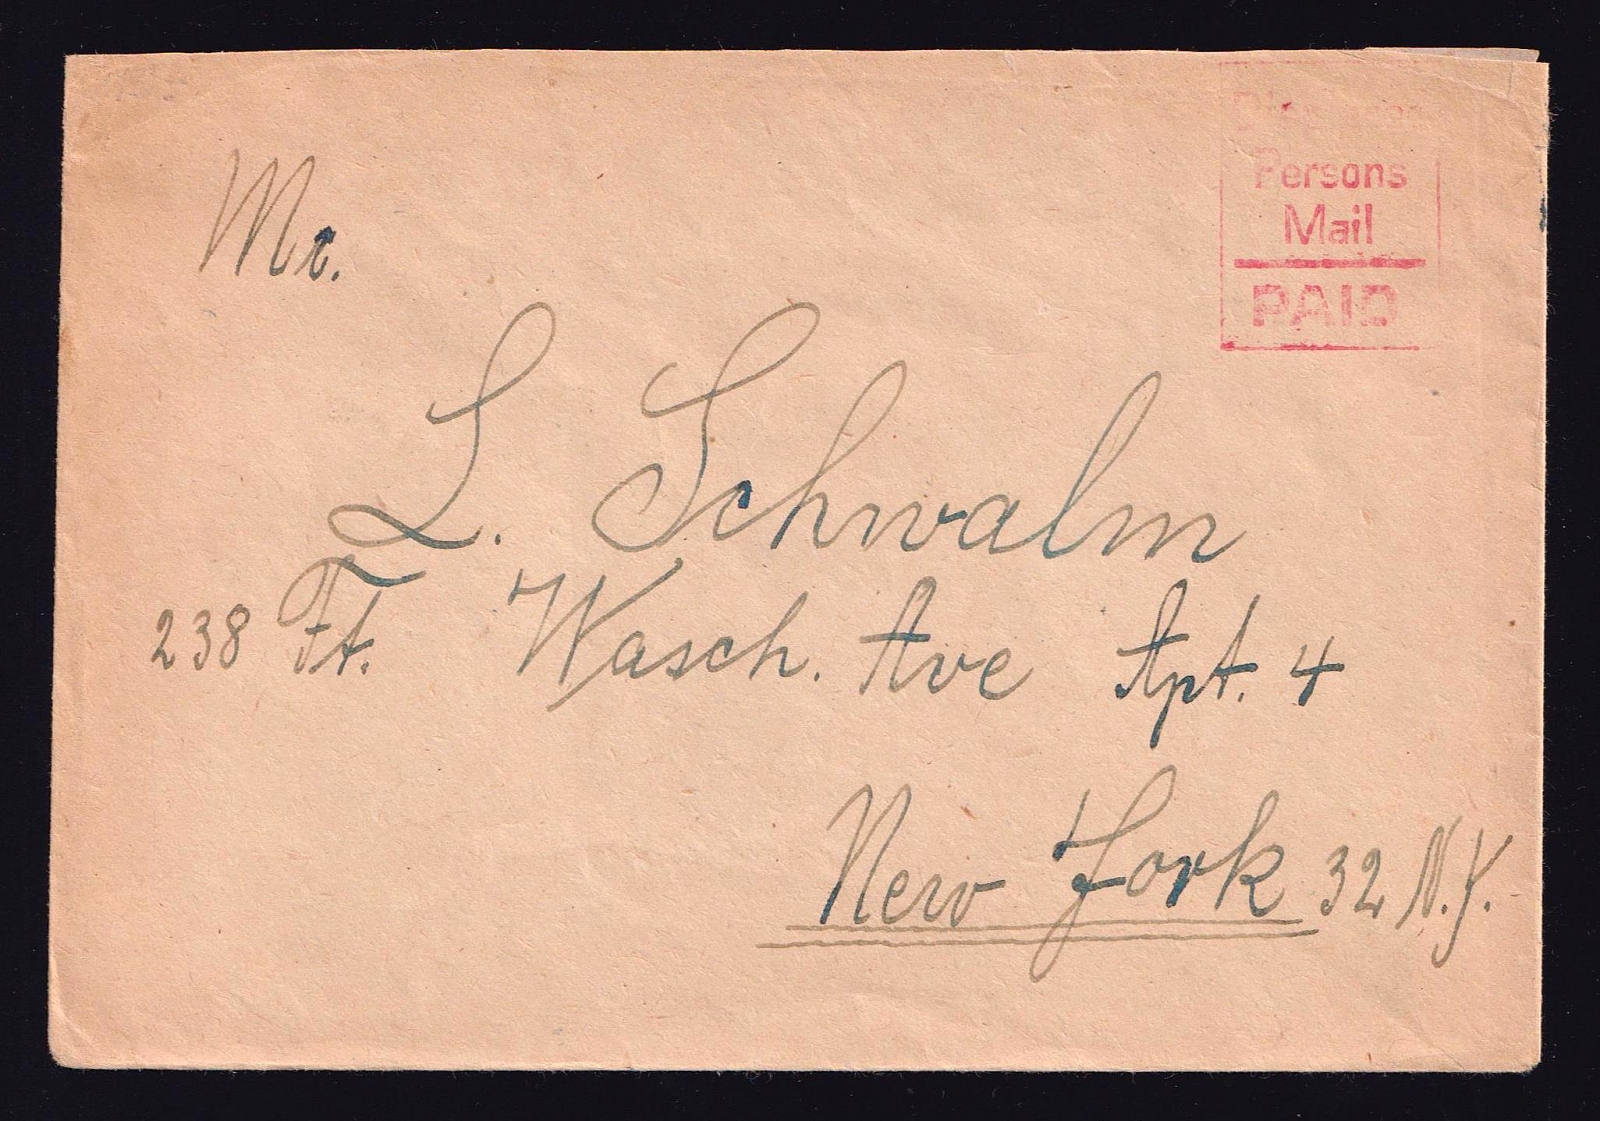 Displaced
Persons
Mail
PAID
Mr.
L. Schwalm
238 Ft. Wasch. Ave Apt. 4
New York 32 N.Y.